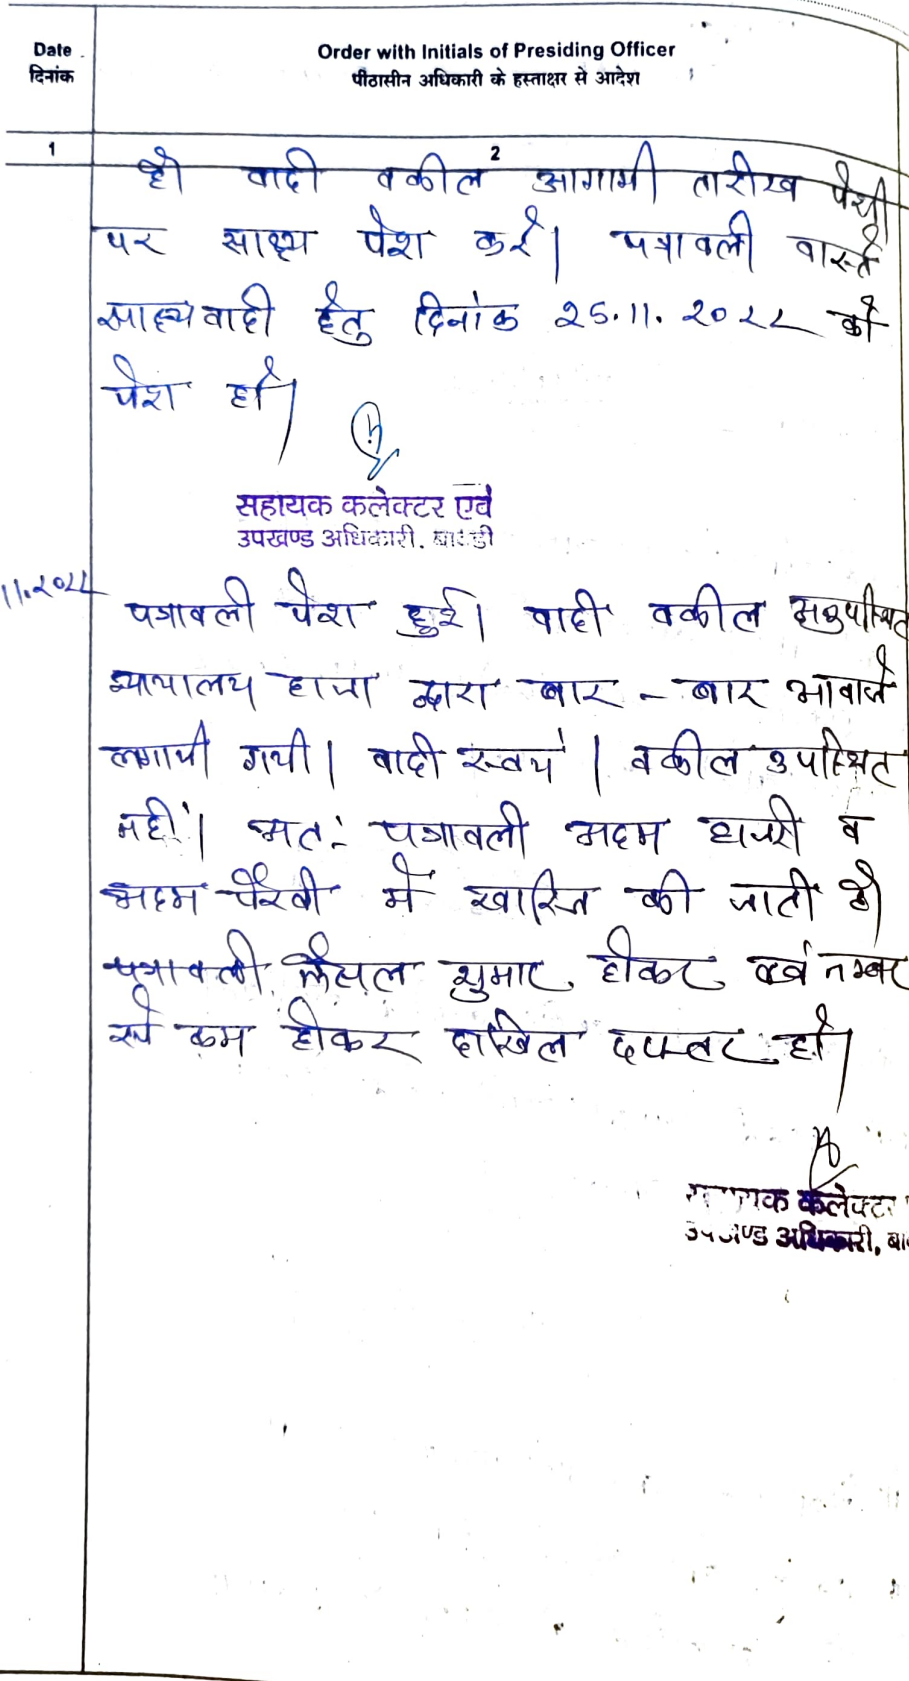 Date
दिनांक
Order with Initials of Presiding Officer
पीठासीन अधिकारी के हस्ताक्षर से आदेश
1
2
है। वादी वकील आगामी तारीख पेशी
पर साक्ष्य पेश करें। पत्रावली वास्ते
साक्ष्य वादी हेतु दिनांक 25.11.2022 को
पेश हो।
सहायक कलेक्टर एवं
उपखण्ड अधिकारी,
11.2022
पत्रावली पेश हुई। वादी वकील अनुपस्थित
न्यायालय हाजा द्वारा बार - बार आवाजे
लगायी गयी। वादी स्वयं । वकील उपस्थित
नहीं। अतः पत्रावली अदम हाजरी व
अदम पैरवी में खारिज की जाती है।
पत्रावली फैसल शुमार होकर नम्बर
से कम होकर दाखिल दफ्तर हो।
कलेक्टर
उपखण्ड अधिकारी, बा